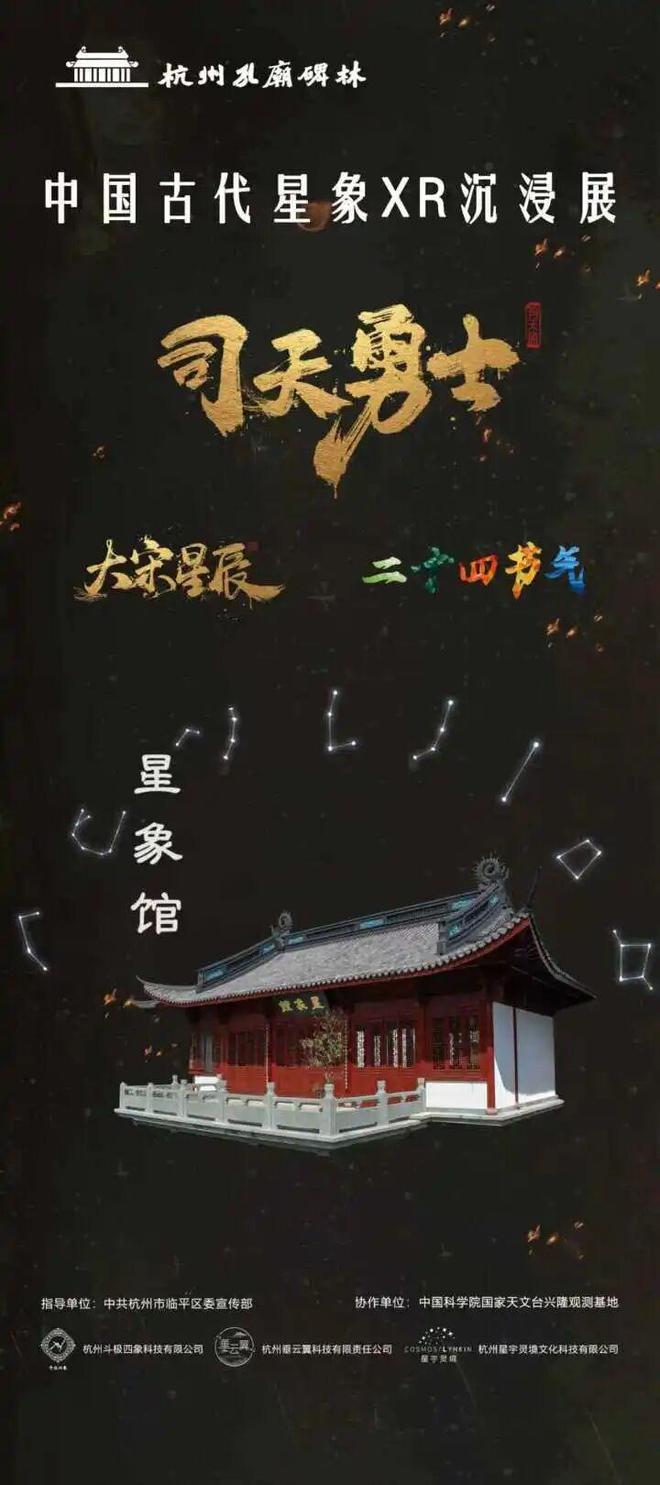 杭州孔廟碑林
中国古代星象XR沉浸展
司天勇士
大宋星辰
二十四节气
星象馆
指导单位：中共杭州市临平区委宣传部
协作单位：中国科学院国家天文台兴隆观测基地
杭州斗极四象科技有限公司
垂云翼
杭州垂云翼科技有限责任公司
COSMOS/LYNKIN
星宇灵境
杭州星宇灵境文化科技有限公司